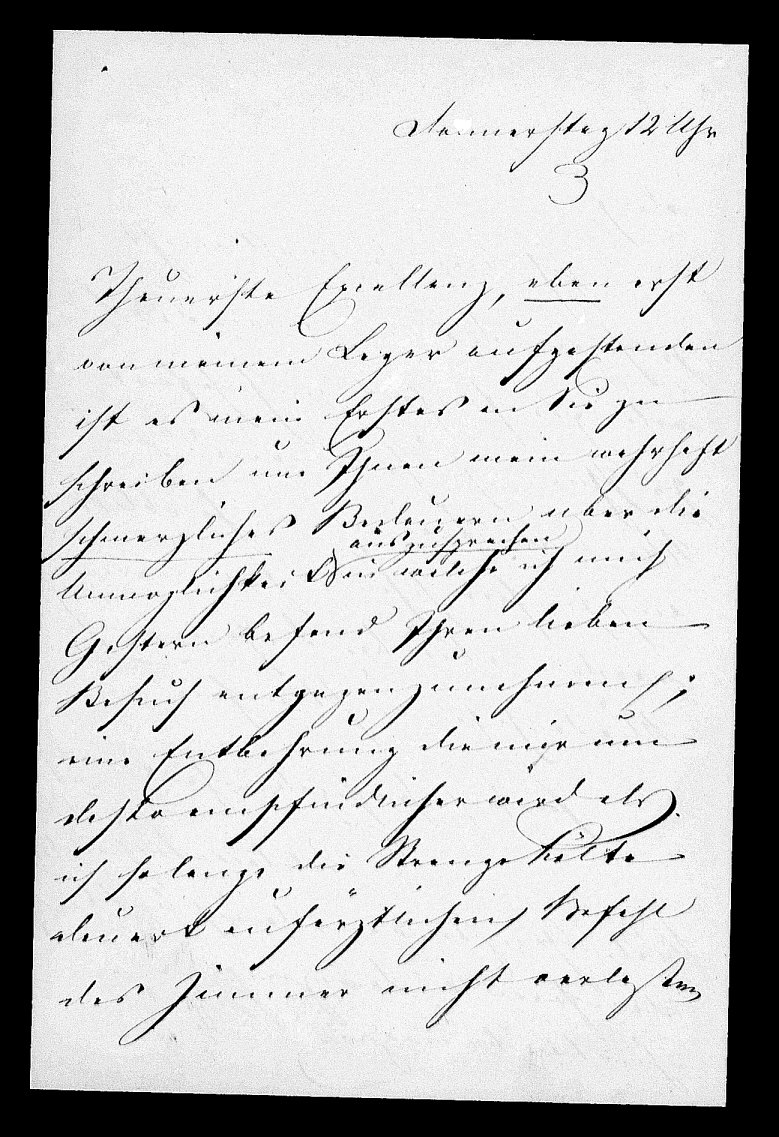 Donnerstag 12 Uhr
3
Theuerste Excellenz, eben erst
von meinem Lager aufgestanden
ist es mein Erstes an Sie zu
schreiben um Ihnen mein wahrhaft
schmerzliches Bedauern über die
auszusprechen
Unmöglichkeit in welche ich mich
Gestern befand Ihren lieben
Besuch entgegenzunehmen;
eine Entbehrung die mir um
desto empfindlicher wird als
ich so lange die Strenge Kälte
dauert auf ärztlichen Befehl
das Zimmer nicht verlassen